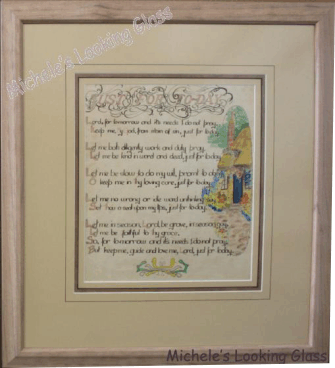 Michele's Looking Glass
Just For Today
Lord, for tomorrow and its needs I do not pray,
Keep me, my God, from stain of sin, just for today.
Let me both diligently work and duly pray,
Let me be kind in word and deed, just for today.
Let me be slow to do my will, prompt to obey,
keep me in Thy loving care, just for today.
Let me no wrong or idle word unthinking say,
Set thou a seal upon my lips, just for today.
Let me in season, Lord, be grave, in season gay,
Let me be faithful to Thy grace,
So, for tomorrow and its needs I do not pray,
But keep me, guide and love me, Lord, just for today.
Michele's Looking Glass